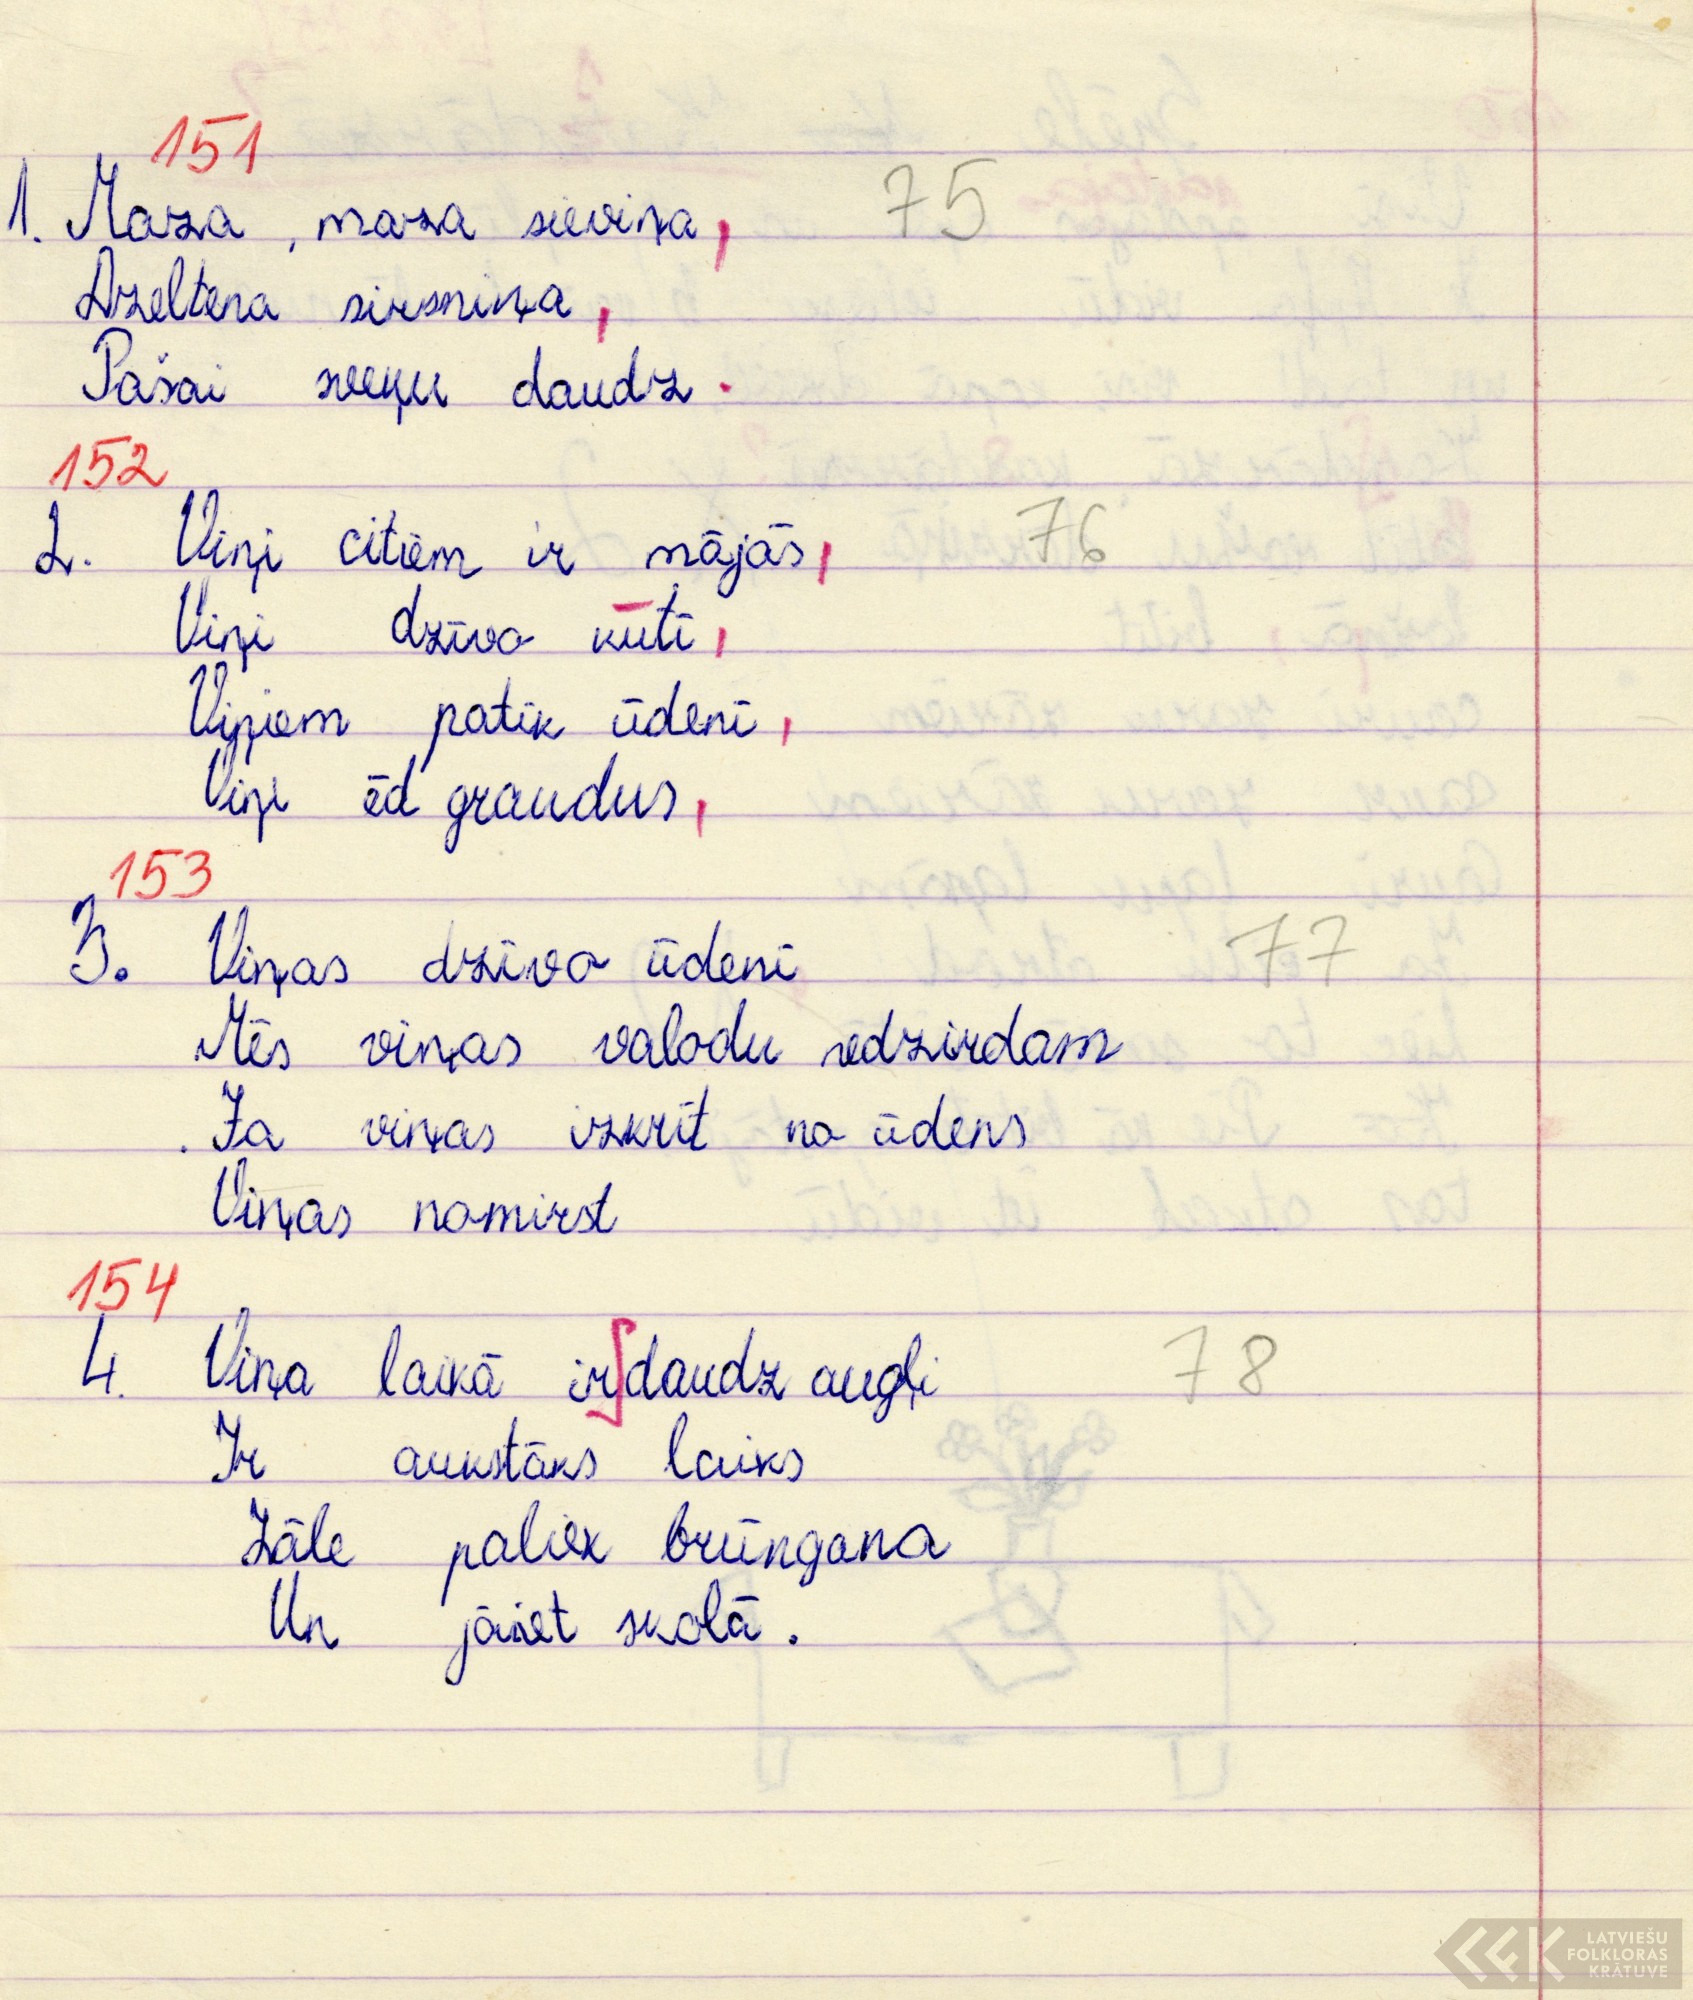 151
1. Maza, maza sieviņa, 75
Dzeltena sirsniņa,
Pašai sveņu daudz.
152
2. Viņi citiem ir mājās, 76
Viņi dzīvo kūtī,
Viņiem patīk ūdenī,
Viņi ēd graudus,
153
3. Viņas dzīvo ūdenī 77
Mēs viņas valodu nedzirdam
Ja viņas izkrīt no ūdens
Viņas nomirst
154
4. Viņa laikā ir daudz augļi 78
Ir aukstāks laiks
Zāle paliek brūngana
Un jāiet skolā.
LATVIEŠU
FOLKLORAS
KRĀTUVE